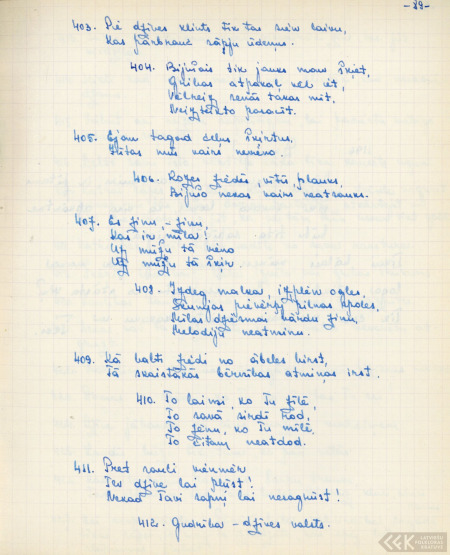 -89-
403. Pie dzīves klints tik tas sien laivu,
Kas pārbrauc sāpju ūdeņus.
404. Bijušais tik jauks man šķiet,
Gribas atpakaļ vēl iet,
Vēlreiz senās takas mīt,
Neizteikto pasacīt.
405. Ejam tagad ceļus šķirtus,
Jūtas mūs vairs nevieno.
406. Rozes ziedēs, vītīs, plauks,
Bijušo nekas vairs neatsauks.
407. Es zinu, - zinu,
Kas ir mīla!
Uz mūžu tā vieno
Uz mūžu tā šķir.
408. Izdeg malka, izplēn ogles,
Skumjas pievērpj pilnas spoles,
Mīlas dziesmai vārdu zinu,
Melodiju neatminu.
409. Kā balti ziedi no ābeles birst,
Tā skaistākās bērnības atmiņas irst.
410. To laimi, ko Tu zīlē,
To savā sirdī rod,
To zēnu, ko Tu mīlē,
To citam neatdod.
411. Pret sauli vienmēr
Tev dzīve lai plūst!
Nekad Tavi sapņi lai nesagrūst!
412. Gudrība - dzīves valsts.
LATVIEŠU
FOLKLORAS
KRĀTUVE